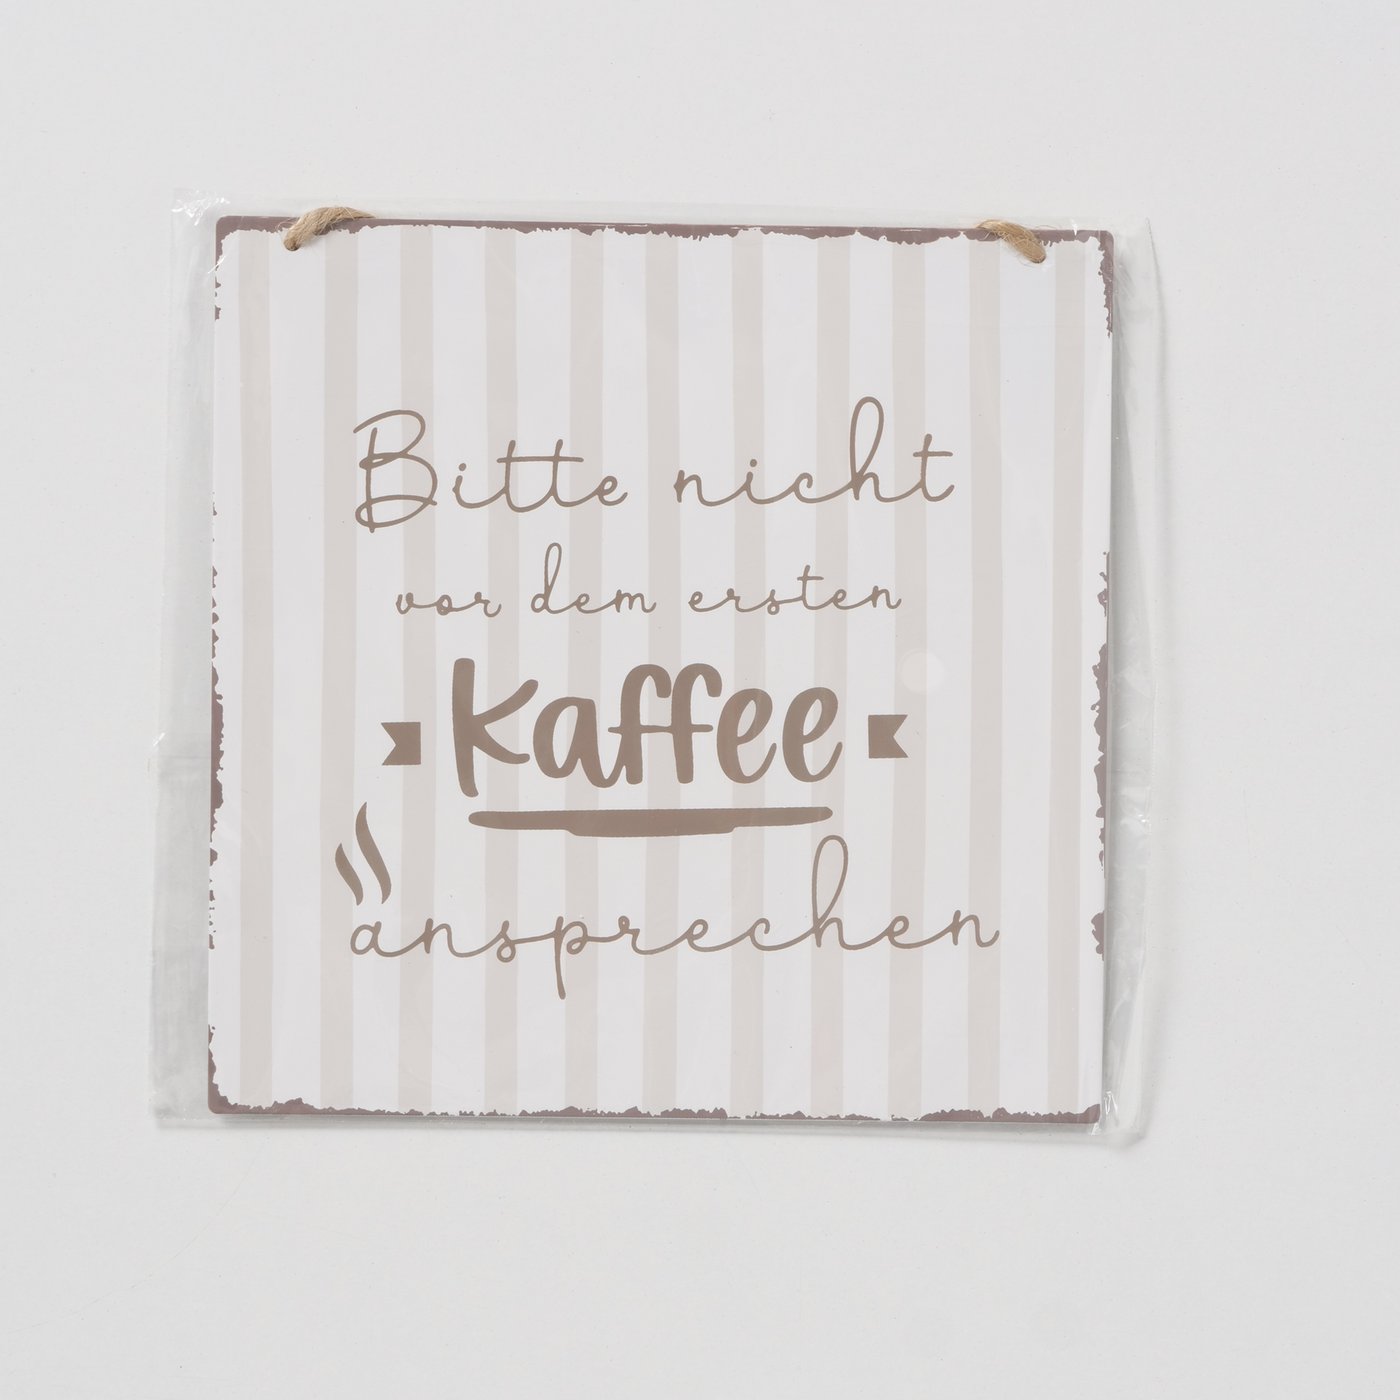 Bitte nicht
vor dem ersten
Kaffee
ansprechen